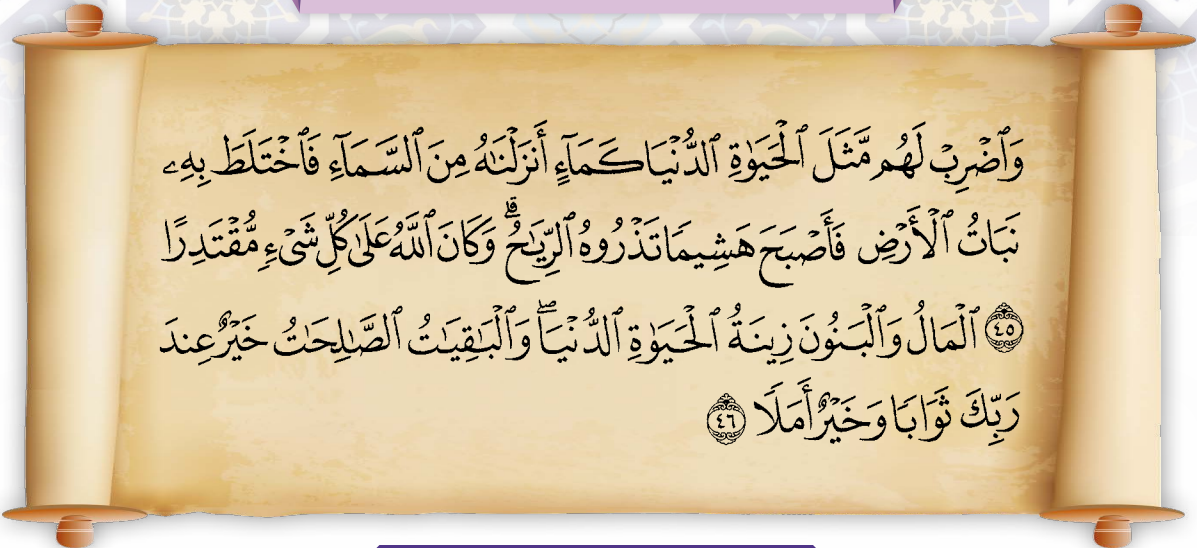 وَٱضۡرِبۡ لَهُم مَّثَلَ ٱلۡحَيَوٰةِ ٱلدُّنۡيَا كَمَآءٍ أَنزَلۡنَٰهُ مِنَ ٱلسَّمَآءِ فَٱخۡتَلَطَ بِهِۦ
نَبَاتُ ٱلۡأَرۡضِ فَأَصۡبَحَ هَشِيمٗا تَذۡرُوهُ ٱلرِّيَٰحُۗ وَكَانَ ٱللَّهُ عَلَىٰ كُلِّ شَيۡءٖ مُّقۡتَدِرًا
٤٥ ٱلۡمَالُ وَٱلۡبَنُونَ زِينَةُ ٱلۡحَيَوٰةِ ٱلدُّنۡيَاۖ وَٱلۡبَٰقِيَٰتُ ٱلصَّٰلِحَٰتُ خَيۡرٌ عِندَ
رَبِّكَ ثَوَابٗا وَخَيۡرٌ أَمَلٗا ٤٦